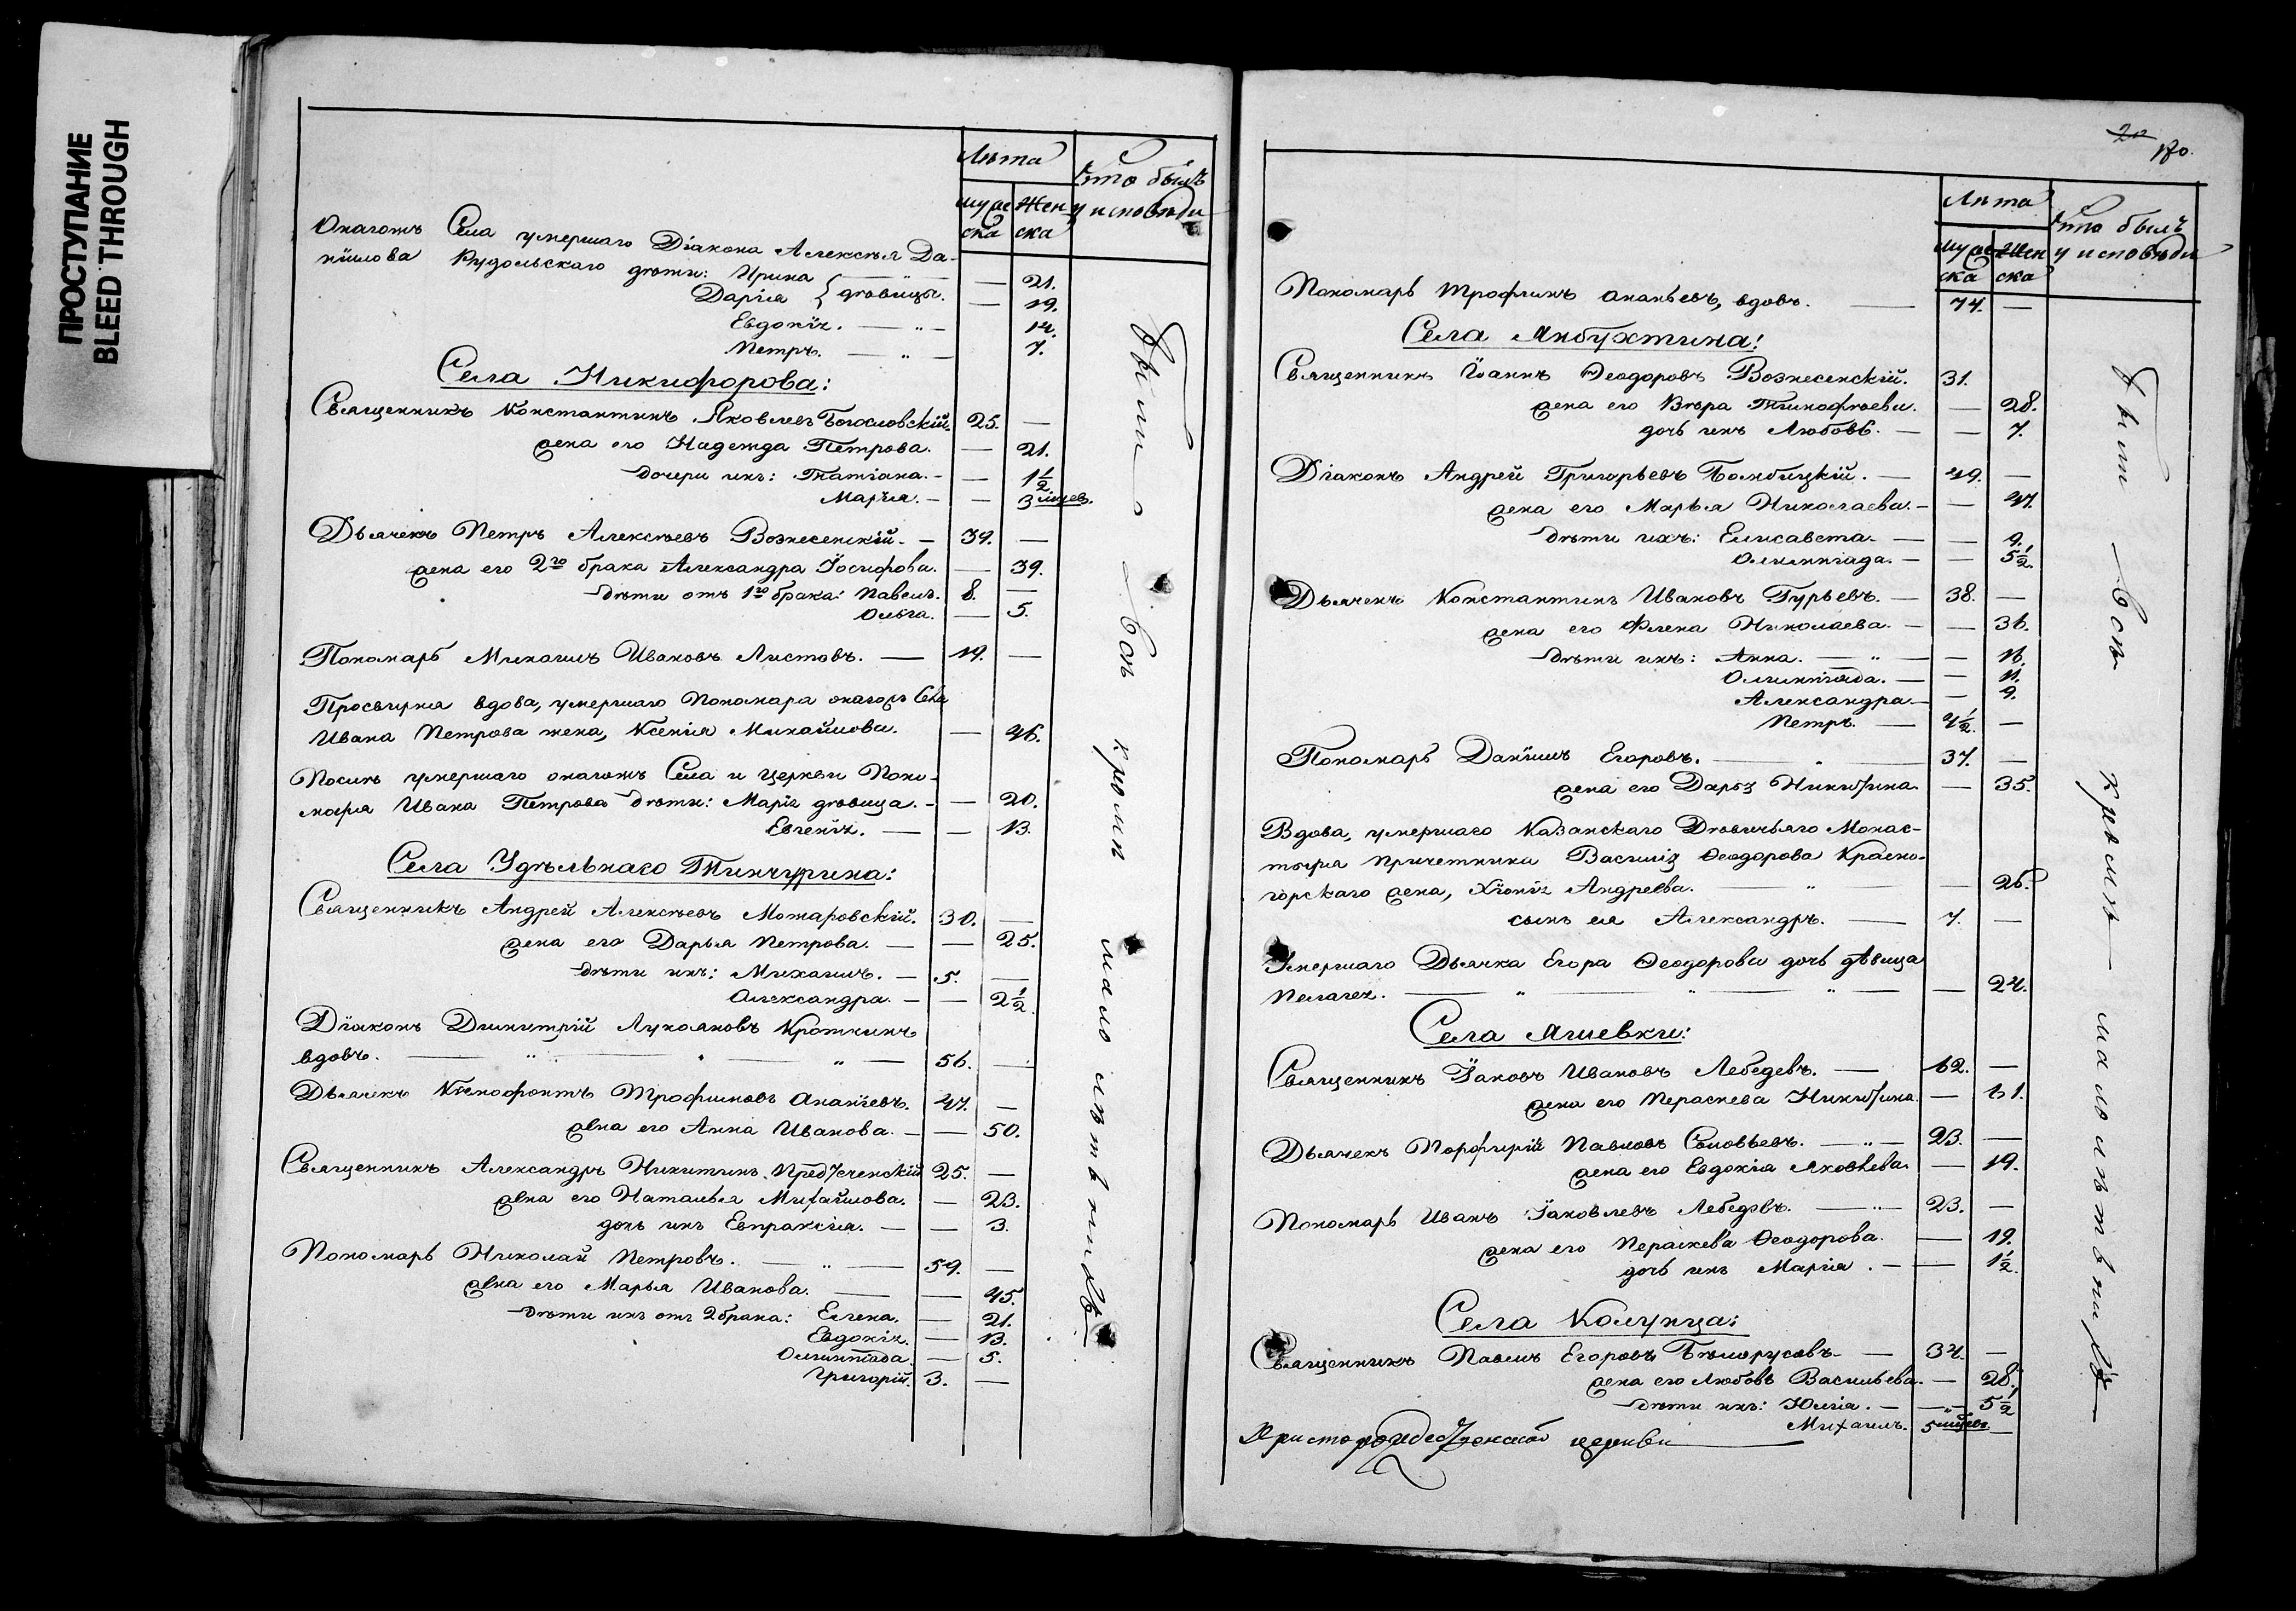 ПРОСТУПАНИЕ
BLEED THROUGH
Лѣта
Кто былъ
у исповѣди
Муже Жен
ска ска
Онагожъ Села умершаго Діакона Алексѣя Да-
нилова Рудольскаго дѣти: Ирина — 21.
Дарія } дѣвицы. — 19.
Евдокія. — " — 14.
Петръ. — " — 7.
Села Никифорова:
Священникъ Константинъ Яковлевъ Богословскій. 25. —
жена его Надежда Петрова. — 21.
дочери ихъ: Татіана. — — 1½
Марія. — — 3 мѣсяц.
Дьячекъ Петръ Алексѣевъ Вознесенскій. — 39. —
жена его 2го брака Александра Іосифова. — 39.
дѣти отъ 1го брака: Павелъ. 8. —
Ольга. — 5.
Пономарь Михаилъ Ивановъ Листовъ. — 19. —
Просвирня вдова, умершаго Пономаря онагожъ Села
Ивана Петрова жена, Ксенія Михайлова. — 46.
Послѣ умершаго онагожъ Села и церкви Поно-
маря Ивана Петрова дѣти: Марія дѣвица. — — 20.
Евгенія. — — 13.
Села Удѣльнаго Тинчурина:
Священникъ Андрей Алексѣевъ Можаровскій. 30. —
жена его Дарья Петрова. — — 25.
дѣти ихъ: Михаилъ. — 5. —
Александра. — — 2½
Діаконъ Димитрій Лукояновъ Кроткинъ
вдовъ. — " — " — " — 56. —
Дьячекъ Ксенофонтъ Трофимовъ Ананьевъ. 47. —
жена его Анна Иванова. — — 50.
Священникъ Александръ Никитинъ Предтеченскій 25. —
жена его Наталья Михайлова. — 23.
дочь ихъ Евпраксія. — — 3.
Пономарь Николай Петровъ. — " — 59. —
жена его Марья Иванова. — — 45.
дѣти ихъ отъ 2 брака: Елена. — 21.
Евдокія. — 13.
Олимпіада. — 5.
Григорій. 3. —
Были Всѣ кромѣ малолѣтнихъ
20 170.
Лѣта
Кто былъ
у исповѣди
Муже Жен
ска ска
Пономарь Трофимъ Ананьевъ, вдовъ. — 74. —
Села Янбухтина:
Священникъ Іоаннъ Ѳеодоровъ Вознесенскій. 31.
жена его Вѣра Тимофѣева. — 28.
дочь ихъ Любовь. — — 7.
Діаконъ Андрей Григорьевъ Бомбицкій. — 49. —
жена его Марья Николаева. — — 47.
дѣти ихъ: Елисавета. — — 9.
Олимпіада. — — 5½.
Дьячекъ Константинъ Ивановъ Гурьевъ. — 38. —
жена его Флена Николаева. — — 36.
дѣти ихъ: Анна. — " — — 16.
Олимпіада. — — 11.
Александра. — — 9.
Петръ. — 4½. —
Пономарь Даніилъ Егоровъ. — 37. —
жена его Дарья Никитина. — 35.
Вдова, умершаго Казанскаго Дѣвичьяго Монас-
тыря причетника Василія Ѳеодорова Красно-
горскаго жена, Хіонія Андреева. — " — — 26.
сынъ ея Александръ. — 7. —
Умершаго Дьячка Егора Ѳеодорова дочь дѣвица
Пелагея. — " — " — " — — 24.
Села Ялшевки:
Священникъ Іаковъ Ивановъ Лебедевъ. — 62. —
жена его Параскева Никитина. — 61.
Дьячекъ Порфирій Павловъ Соловьевъ. — " — 23. —
жена его Евдокія Яковлева. — 19.
Пономарь Иванъ Іаковлевъ Лебедевъ. — " — 23. —
жена его Параскева Ѳеодорова. — 19.
дочь ихъ Марія. — — 1½.
Села Колунца:
Священникъ Павелъ Егоровъ Бѣлорусовъ. — 34. —
жена его Любовь Васильева. — 28.
дѣти ихъ: Юлія. — — 5½
Михаилъ. 5 мѣсяц. —
Христорождественской церкви
Были Всѣ кромѣ малолѣтнихъ